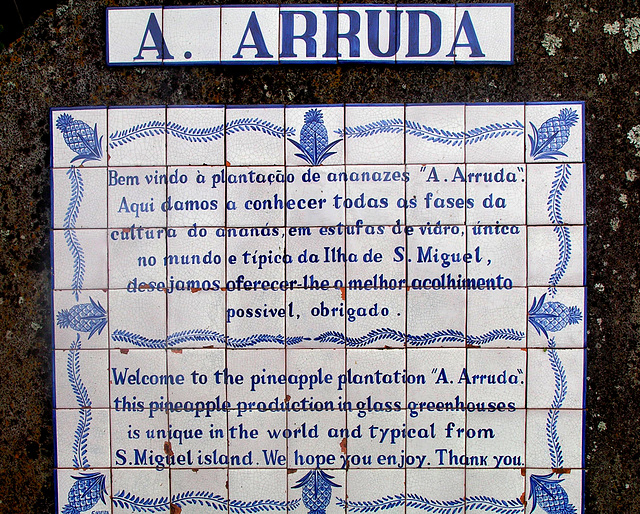 A. ARRUDA
Bem vindo à plantação de ananazes "A. Arruda".
Aqui damos a conhecer todas as fases da
cultura do ananás, em estufas de vidro, único
no mundo e típico da Ilha de S. Miguel,
desejamos oferecer-lhe o melhor acolhimento
possivel, obrigado.
Welcome to the pineapple plantation "A. Arruda".
this pineapple production in glass greenhouses
is unique in the world and typical from
S. Miguel island. We hope you enjoy. Thank you.